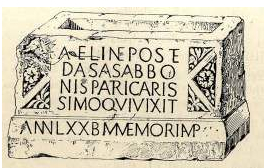 AELINEPOSTE
DASASABBO
NISPARICARIS
SIMOQVIVIXIT
ANNLXXBMMEMORIMP